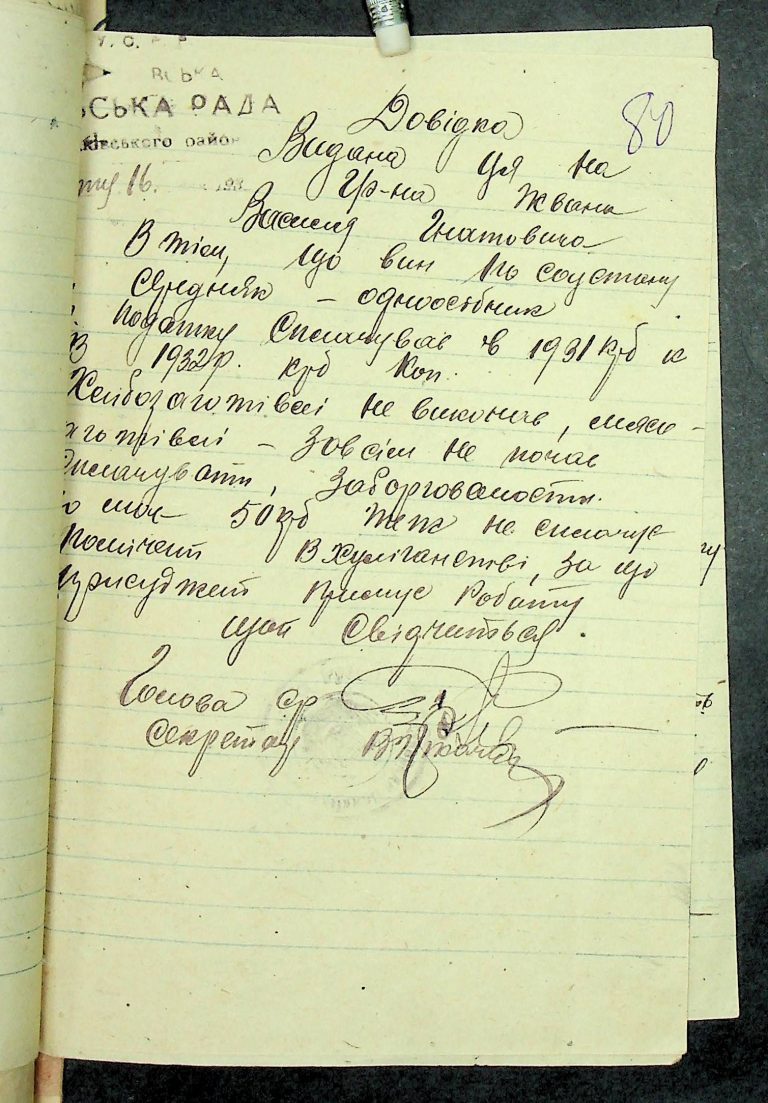 У. С.
ВСЬКА
СЬКА РАДА
ківського район
16. 193
80
Довідка
Видана ця на
Гр-на Жвана
Василя Гнатовича
В тім, що вин по соцстану
Середняк – одноосібник
податку Сплачував в 1931 крб к
В 1932 р. крб Коп.
Хлібозаготівлі не виконав, мясо-
аготівлі – Зовсім не почав
Сплачувати, Заборгованости
50 крб теж не сплачує
Помічен В хуліганстві, За що
присуджен примус Роботу
що й Свідчиться.
Голова ср
Секретар